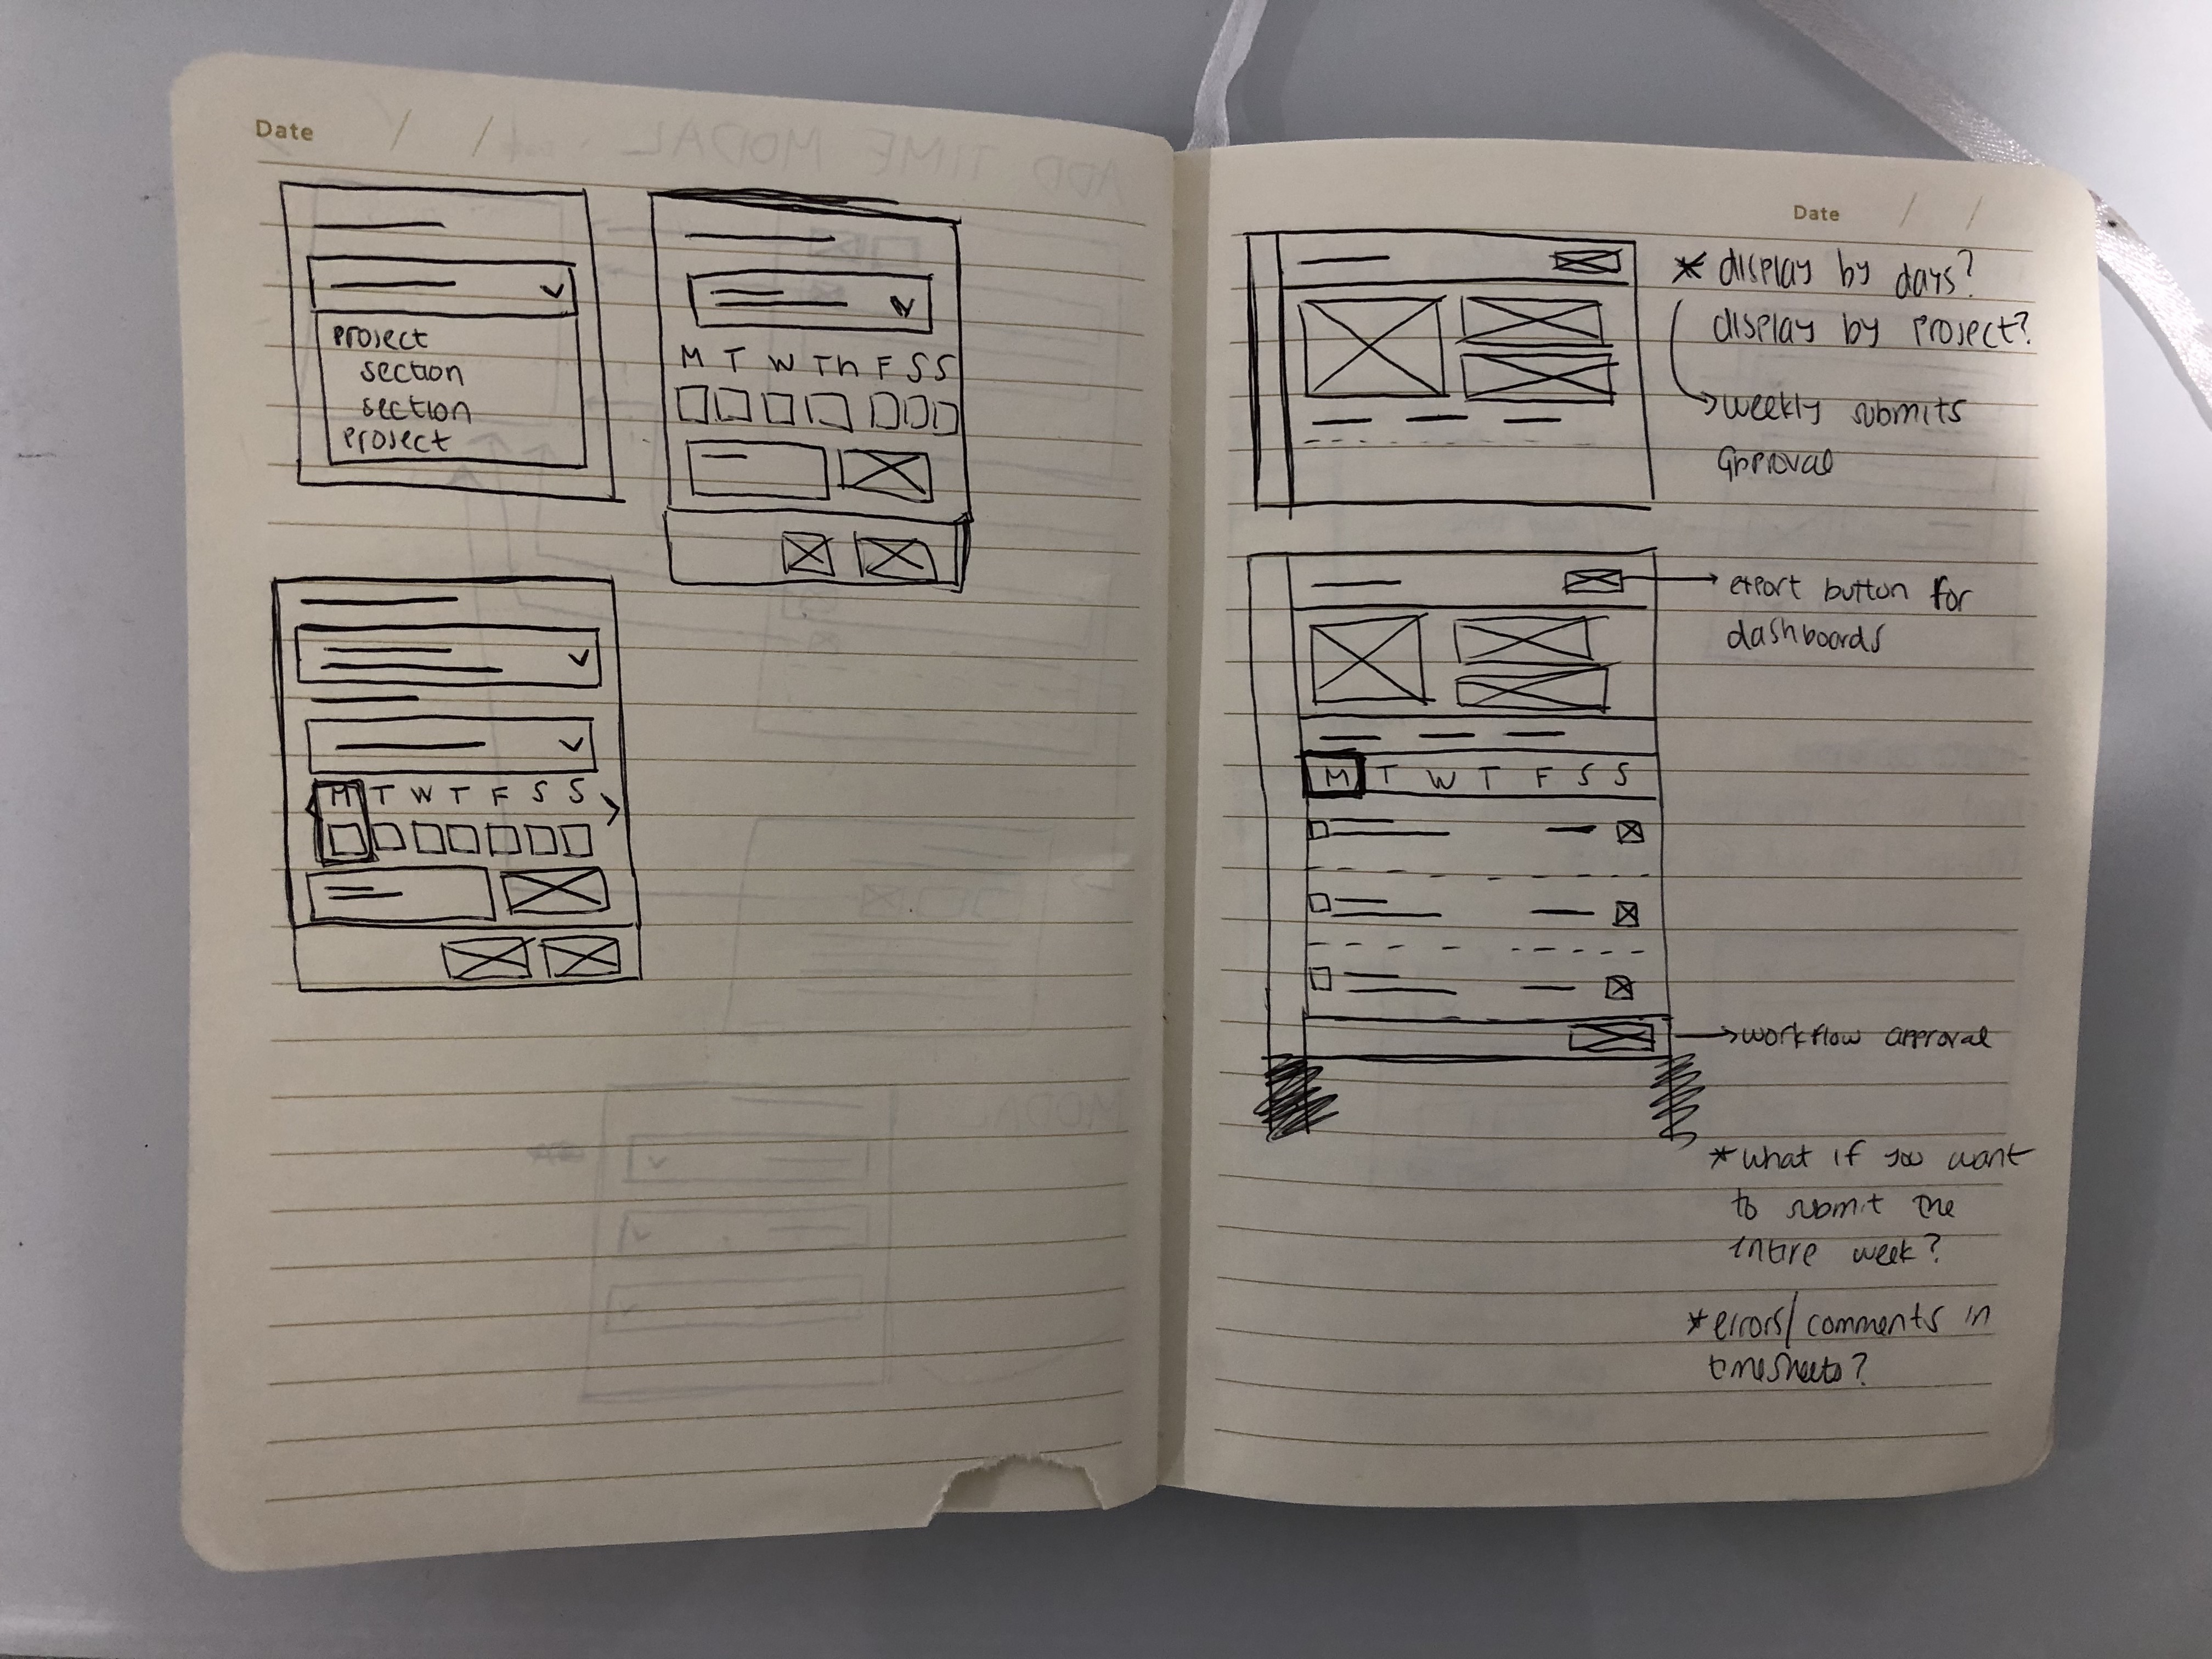 Date / /
project
section
section
project
M T W Th F S S
M T W T F S S
Date / /
* display by days?
display by project?
weekly submits
approval
export button for
dashboards
M T W T F S S
workflow approval
* what if you want
to submit the
entire week?
* errors/comments in
timesheets?
ADD TIME MODAL
MODAL